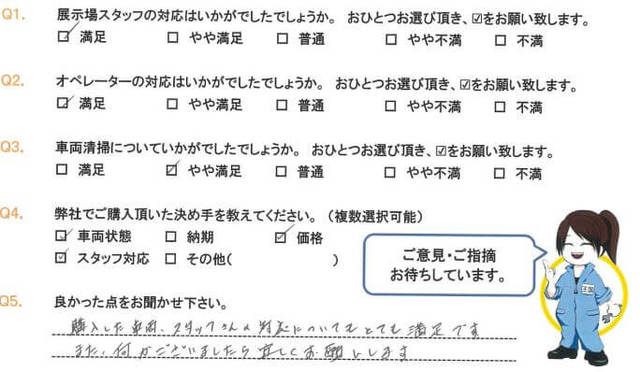 Q1. 展示場スタッフの対応はいかがでしたでしょうか。 おひとつお選び頂き、☑をお願い致します。
☑ 満足 □ やや満足 □ 普通 □ やや不満 □ 不満
Q2. オペレーターの対応はいかがでしたでしょうか。 おひとつお選び頂き、☑をお願い致します。
☑ 満足 □ やや満足 □ 普通 □ やや不満 □ 不満
Q3. 車両清掃についていかがでしたでしょうか。 おひとつお選び頂き、☑をお願い致します。
□ 満足 ☑ やや満足 □ 普通 □ やや不満 □ 不満
Q4. 弊社でご購入頂いた決め手を教えてください。(複数選択可能)
☑ 車両状態 □ 納期 ☑ 価格
☑ スタッフ対応 □ その他( )
ご意見・ご指摘
お待ちしています。
Q5. 良かった点をお聞かせ下さい。
購入した車両、スタッフさんの対応についてもとても満足です
また、何かございましたら宜しくお願いします